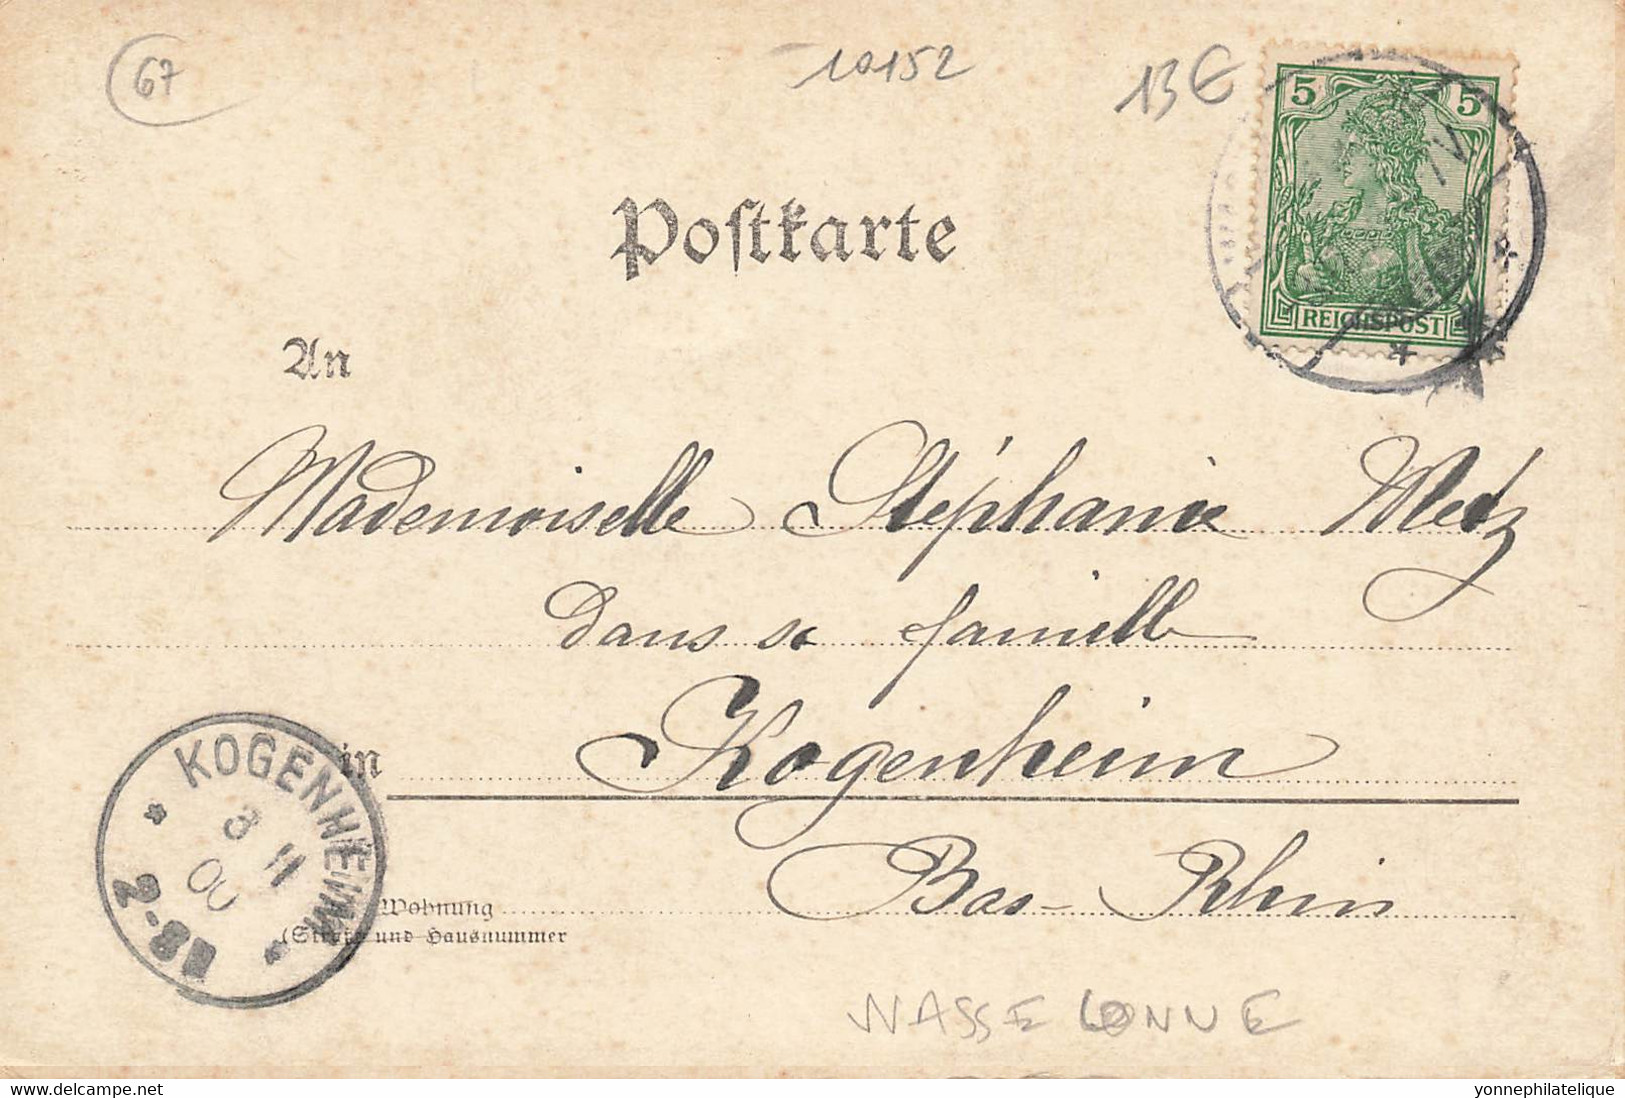 67
10152
13€
5 5
REICHSPOST
Postkarte
An
Mademoiselle Stéphanie Metz
dans sa famille
in Kogenheim
Bas-Rhin
KOGENHEIM
3 11
00
2-3N
Wohnung
(Straße und Hausnummer
WASSELONNE
delcampe.net
yonnephilatelique